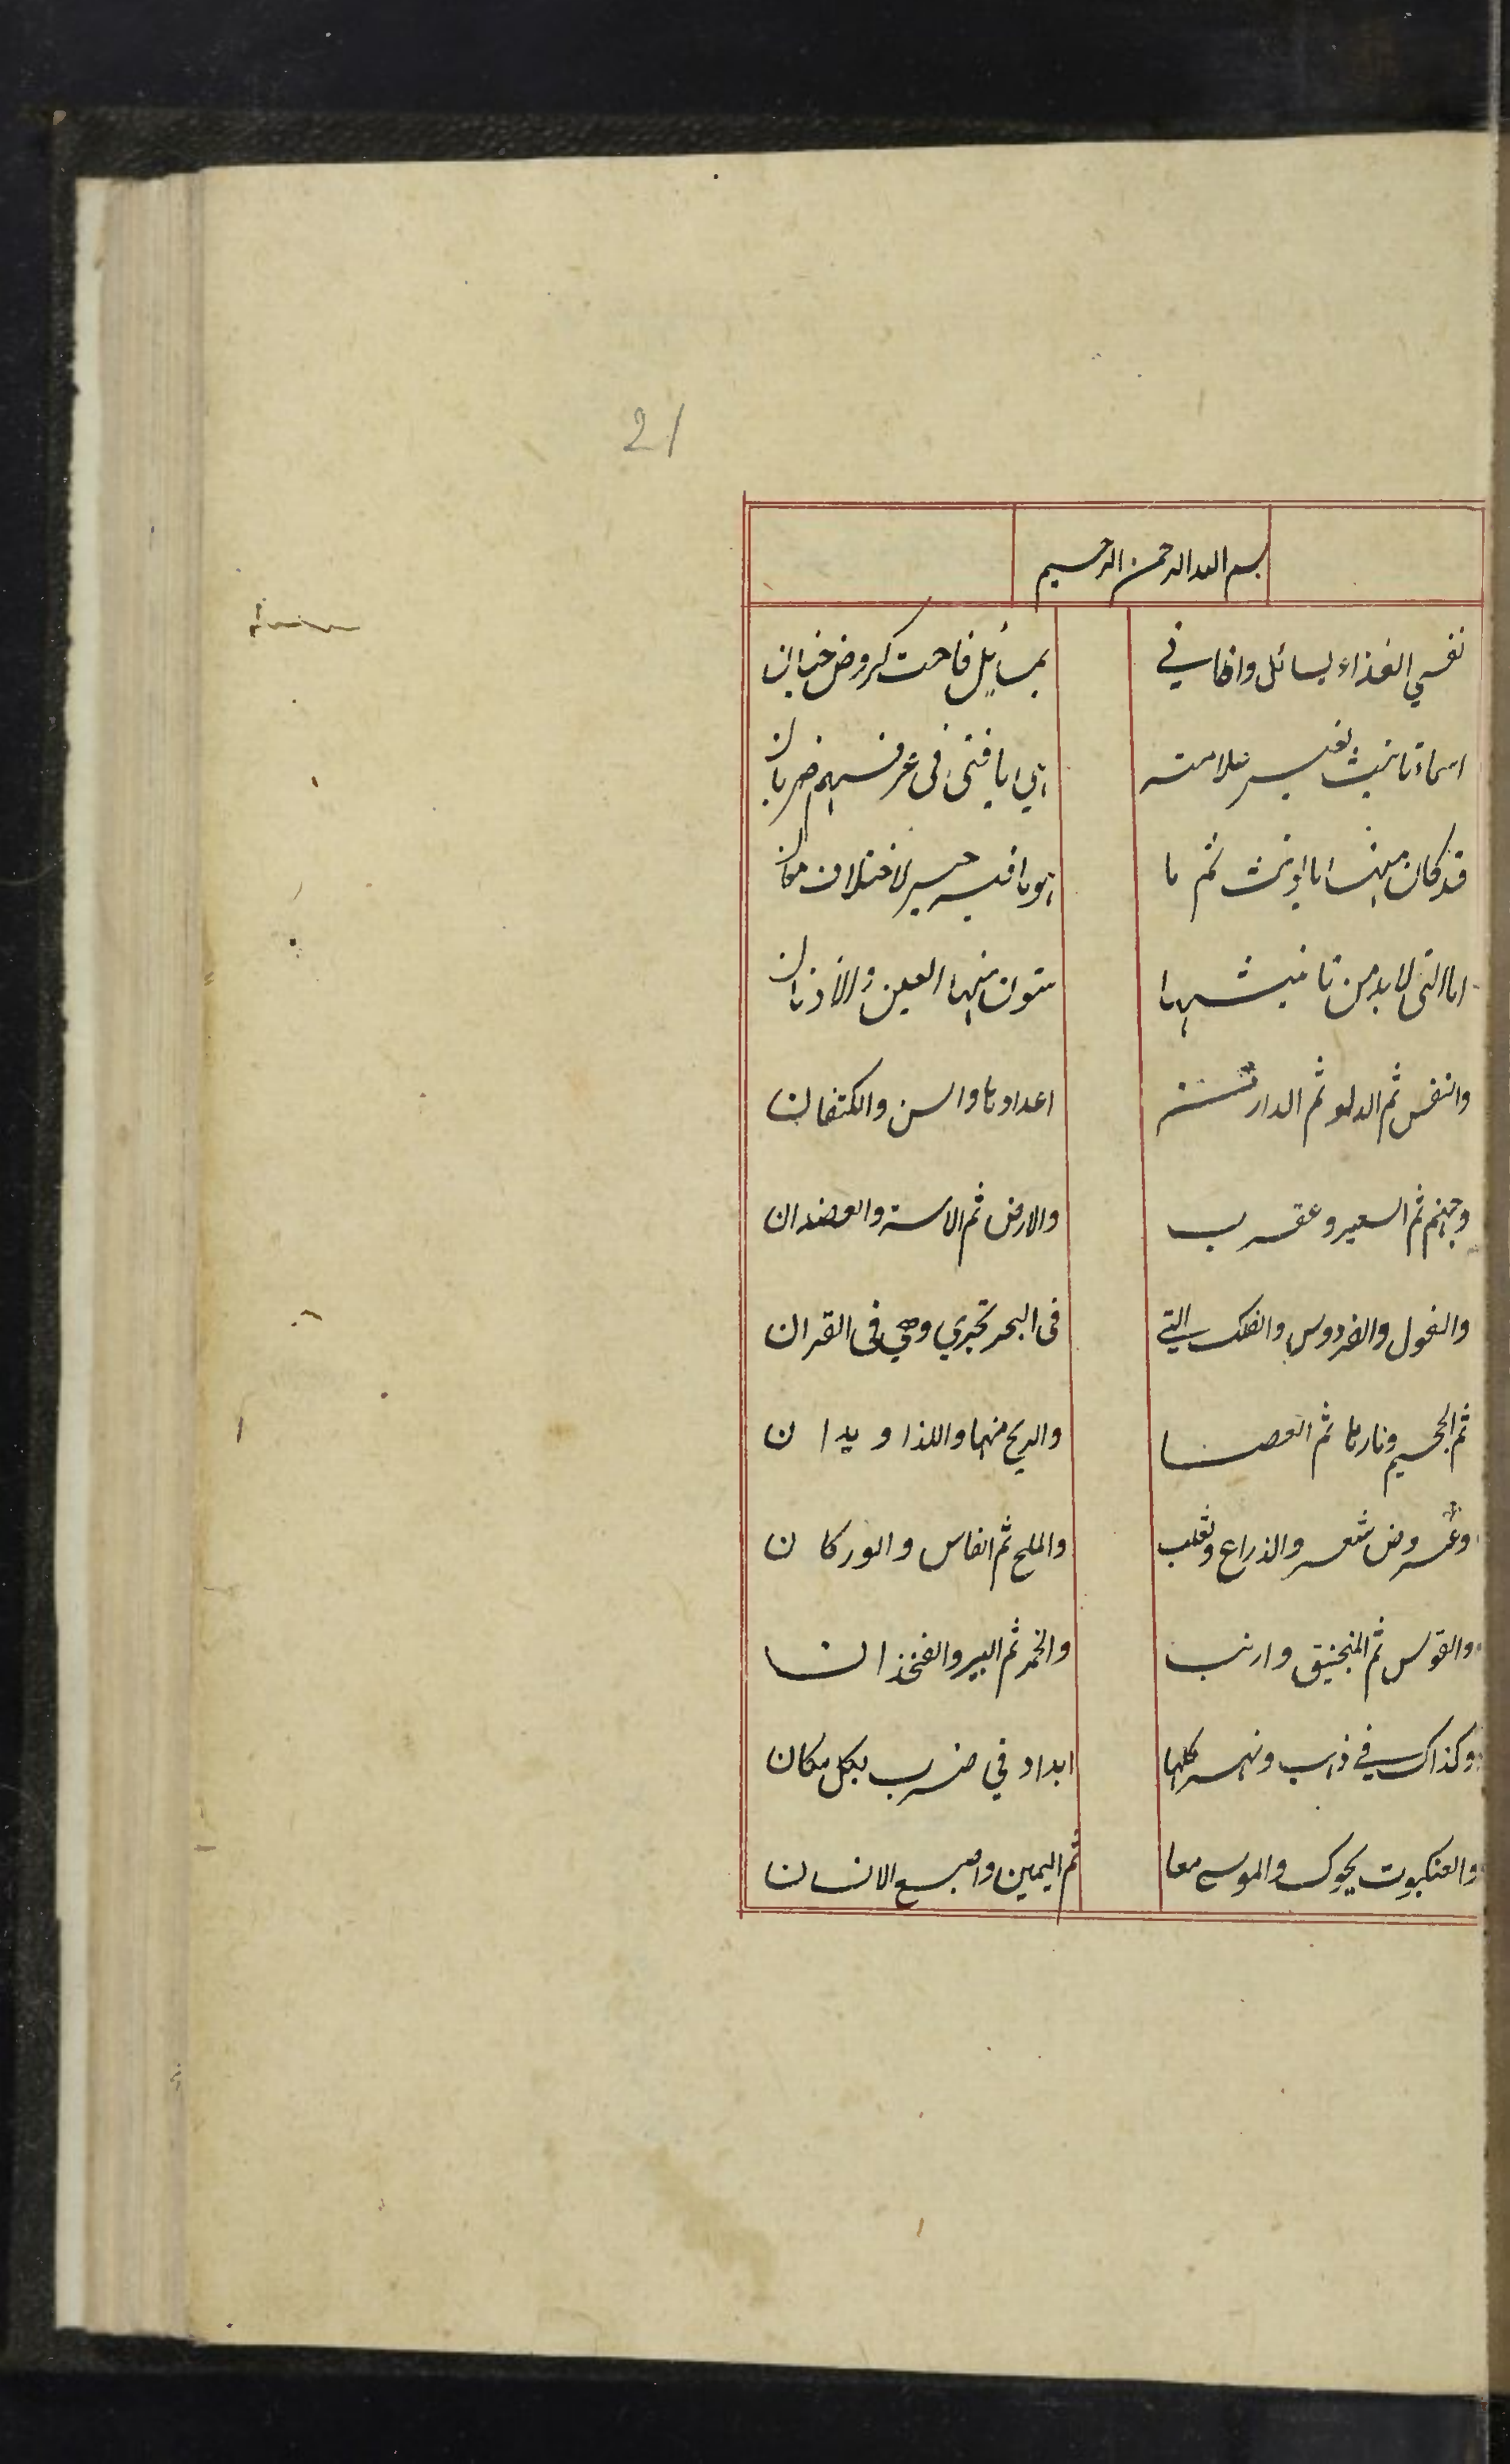 21
بسم الله الرحمن الرحيم
نفسي الفذاء لسائل وافاني بمسائل فاحت كروض جنان
اسماء تانيث بغير علامته هي يا فتى فى عرفهم ضربان
قد كان منها ما يونث ثم ما هو ما فيه خير لاختلاف معان
اما التى لا بد من تانيثها ستون منها العين والاذنان
والنفس ثم الدلو ثم الدار من اعدادها والسن والكتفان
وجهنم ثم السعير وعقرب والارض ثم الاست والعضدان
والغول والفردوس والفلك التي فى البحر تجري وهي فى القران
ثم الجحيم ونارها ثم العصا والريح منها واللذا ويدان
وعروض شعر والذراع وثعلب والملح ثم الفاس والوركان
والقوس ثم المنجنيق وارنب والخمر ثم البير والفخذان
وكذاك في ذهب ونهر كلها ابدا وفي ضرب بكل مكان
والعنكبوت يحوك والموسى معا ثم اليمين واصبع الانسان